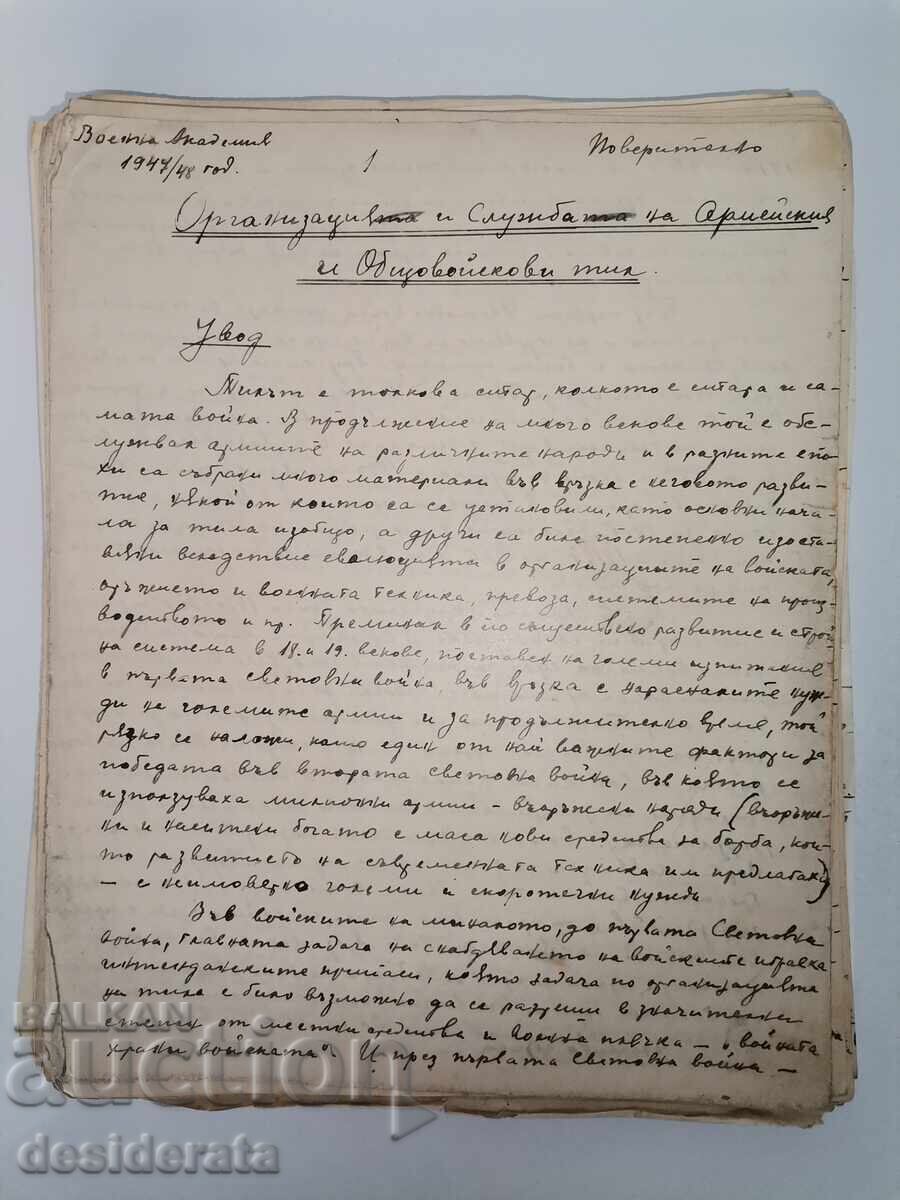 Военна Академия
1947/48 год.
1
Поверително
Организация и Служба на Армейския
и Общовойскови тил.
Увод
Тилът е толкова стар, колкото е стара и са-
мата война. В продължение на много векове той е обс-
лужвал армиите на различните народи и в разните епо-
хи са събрани много материали във връзка с неговото разви-
тие, някой от които са се установили, като основни нача-
ла за тила изобщо, а други са били постепенно изоста-
вяни вследствие еволюцията в организациите на войската,
оръжието и военната техника, превоза, системите на произ-
водството и пр. Преминал в по съществено развитие и строй-
на система в 18. и 19. векове, поставен на големи изпитания
в първата световна война, във връзка с нарасналите нуж-
ди на големите армии и за продължително време, той
рязко се наложи, като един от най важните фактори за
победата във втората световна война, във която се
използуваха милионни армии – въоръжени народи (въоръже-
ни и наситени богато с маса нови средства за борба, кои-
то развитието на съвременната техника им предлагаха)
– с неимоверно големи и скоротечни нужди
Във войските на миналото, до първата Световна
война, главната задача на снабдяването на войските
интендантските припаси, която задача по организацията
на тила е било възможно да се разреши в значителна
степен от местни средства и военна плячка – „войната
храни войската". И през първата Световна война –
BALKAN
auction
desiderata